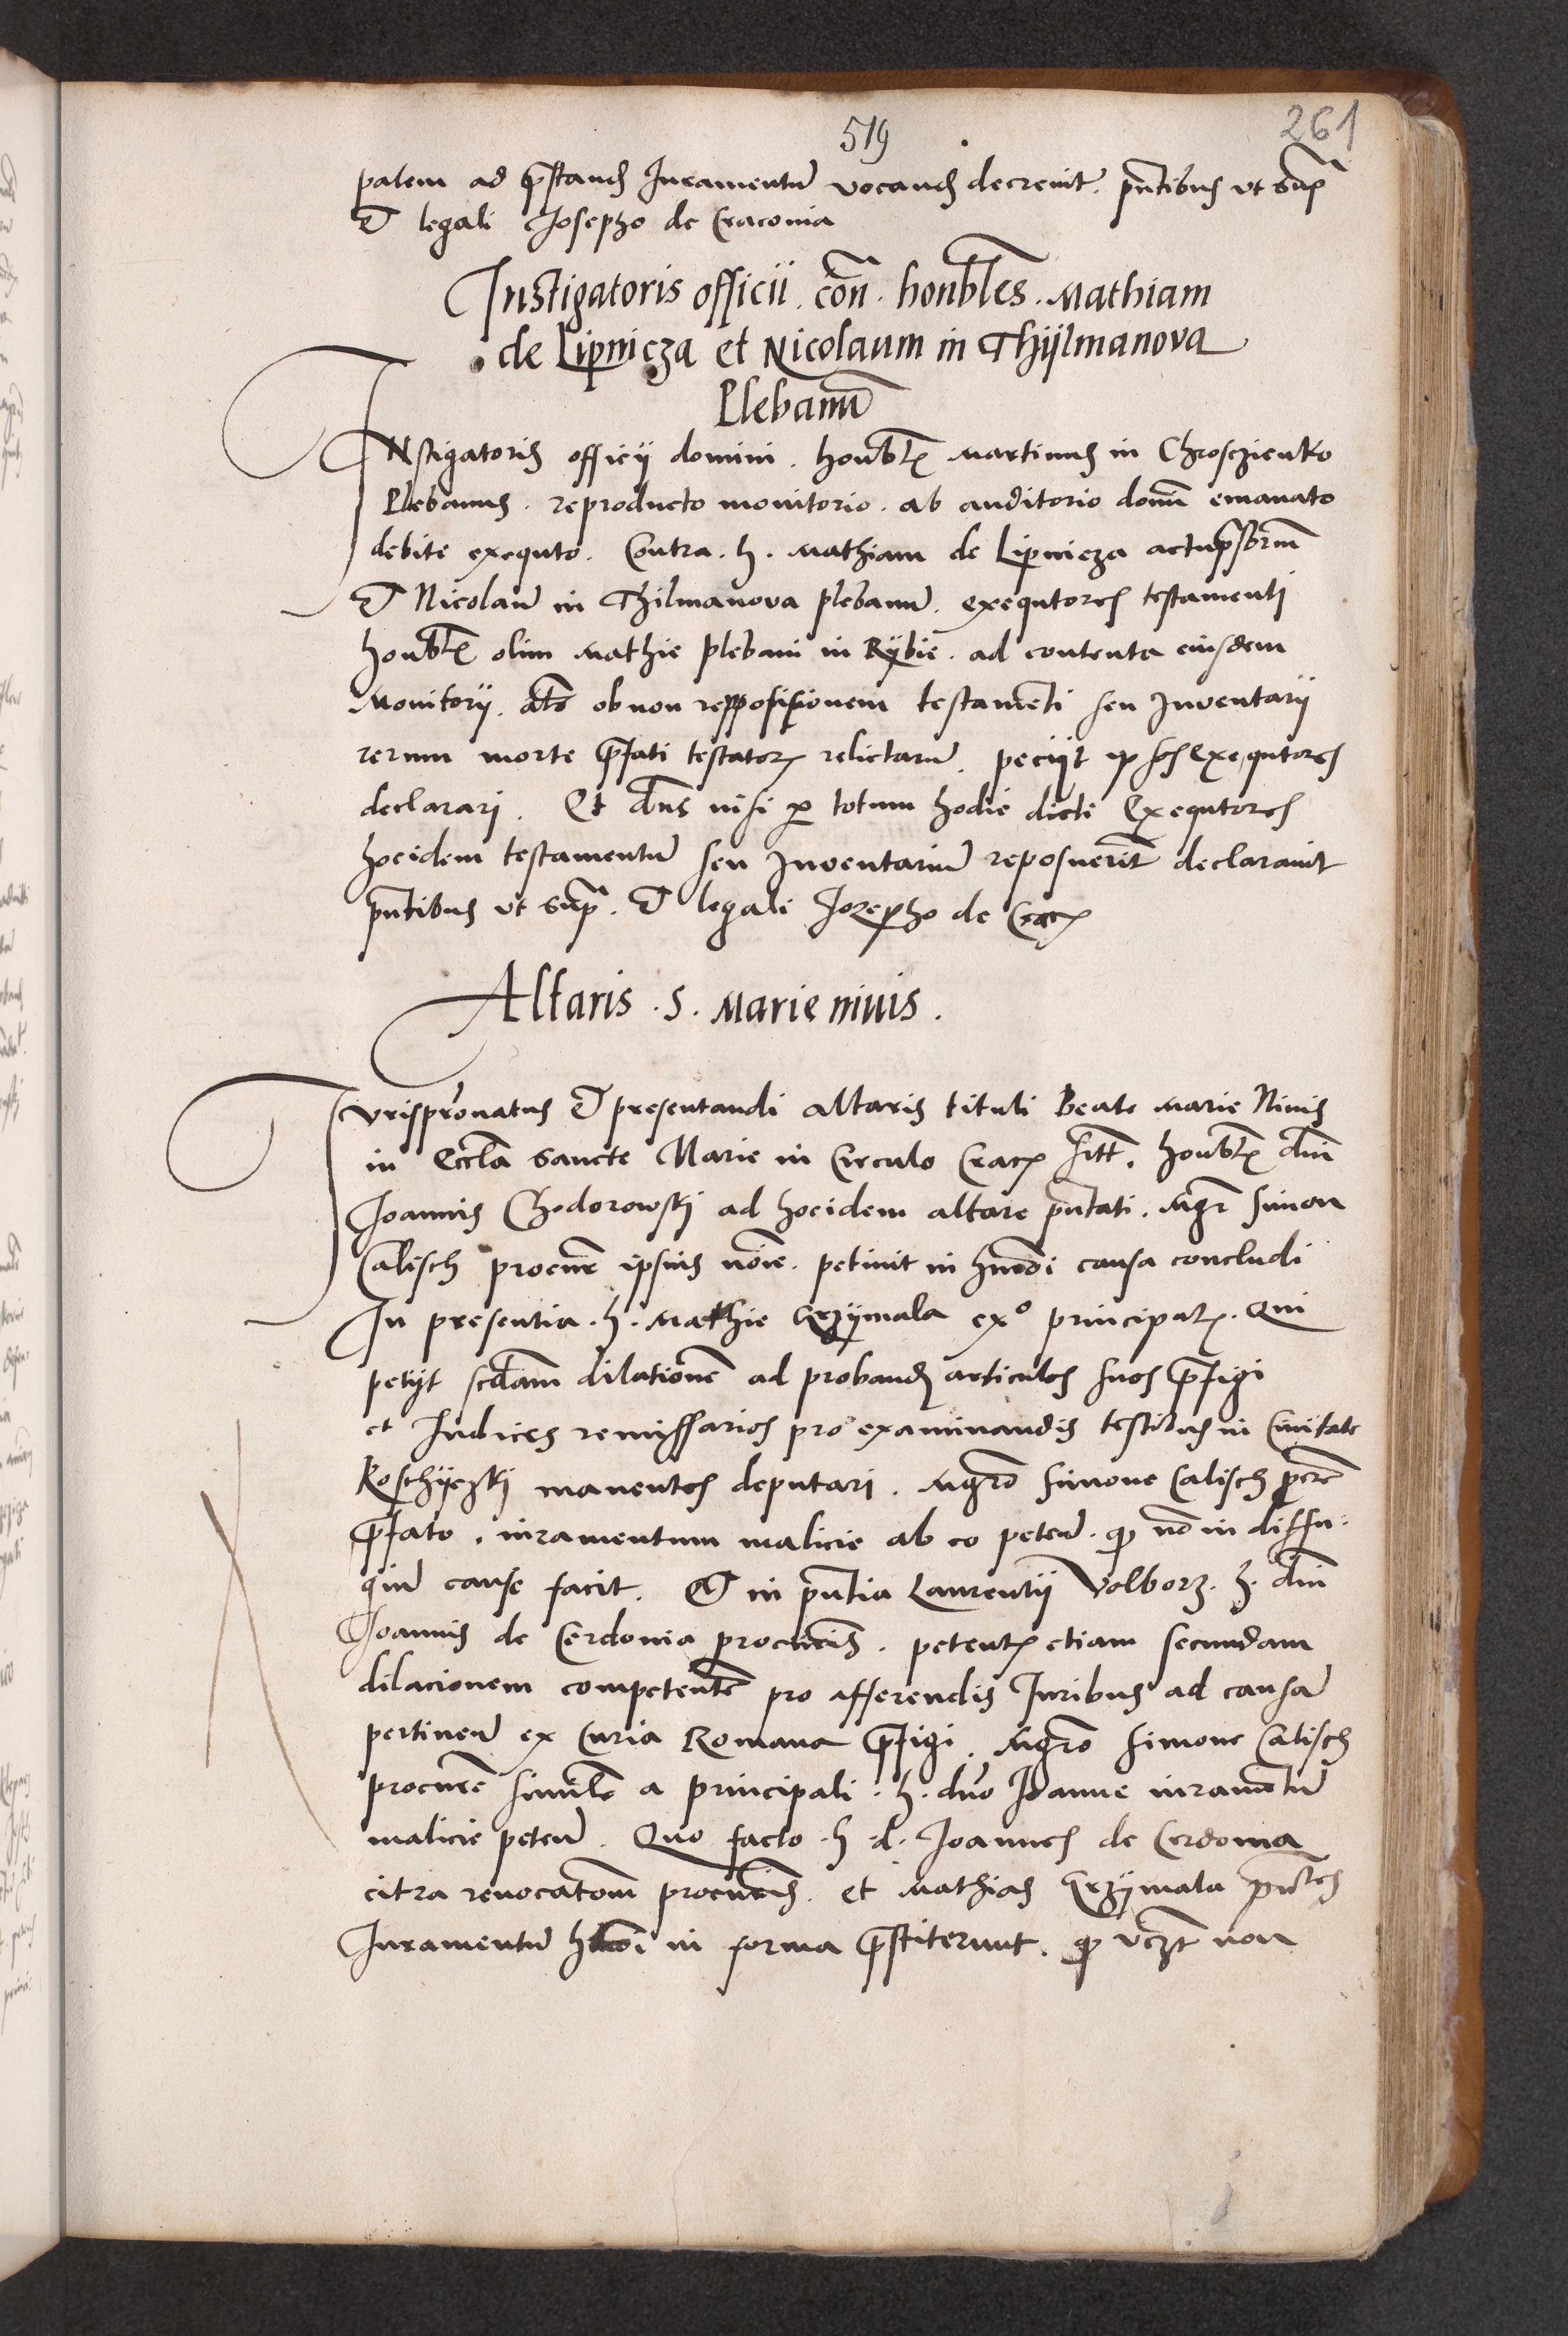 519
261
palem ad p̄standꝭ Iuramentū vocandꝭ decreuit. pn̄tibus vt sup̄
et legali Josepho de Cracouia
Instigatoris officii. con̄. honbles. Mathiam
de Lipnicza et Nicolaum in Thÿlmanova
Plebanū
INstigatoris officÿ domini. honbꝉꝭ Martinus in Chrosczienko
Plebanus. reproducto monitorio. ab auditorio domī emanato
debite exequto. Contra. h. Mathiam de Lipnicza
et Nicolaū in Thilmanova plebanū. exequtores testamenti
honbꝉꝭ olim Mathie plebani in Rÿbie. ad contenta eiusdem
Monitorÿ. ob non testamēti seu Inventarÿ
rerum morte p̄fati testatorꝭ relictarū. peciÿt ipsos Exequtores
declarari. Et dn̄s nisi ꝑ totum hodie dicti Exequtores
hocidem testamentū seu Inventariū reposuerīt declarauit
pn̄tibus vt sup̄. et legali Jozepho de Cracꝭ
Altaris. S. Marie niuis.
Iurisprōnatus et presentandi altaris tituli Beate Marie Niuis
in Eccla Sancte Marie in Circulo Cracꝭ sitī. honbꝉꝭ dn̄i
Joannis Chodorowskj ad hocidem altare pn̄tati. Mgr̄ Simon
Calisch procur̄ ipsius noīe. petiuit in hmōi causa concludi
In presentia. h. Mathie Grzÿmala exº principalꝭ. Qui
petÿt scdam dilationē ad probandꝭ articulos suos p̄figi
et Iudices remissarios pro examinandis testibus in Ciuitate
manentes deputari. Mgr̄o Simone Calisch
p̄fato. iuramentum malicie ab eo peten̄. qꝫ nō in diffu=
giū cause facit. Et in pn̄tia Laurentÿ Volborz. h. dn̄i
Joannis de Cerdonia procur̄is. petentꝭ etiam secundam
dilacionem competentē pro afferendis Iuribus ad causā
pertinen̄ ex Curia Romana p̄figi. Mgr̄o Simone Calisch
procur̄e simile a principali. h. dn̄o Joanne iuramentū
malicie peten̄. Quo facto. h. d. Joannes de Cerdonia
citra reuocatōem procur̄is. et Mathias Grzÿmala pn̄tes
Iuramentū hmōi in forma p̄stiterunt. qꝫ vcꝫt non